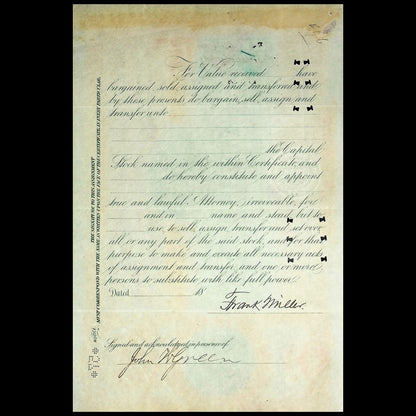 For Value received have
bargained, sold, assigned and transferred and
by these presents do bargain, sell, assign and
transfer unto
the Capital
Stock named in the within Certificate, and
do hereby constitute and appoint
true and lawful Attorney, irrevocable, for
and in name and stead, but to
use, to sell, assign, transfer and set over,
all or any part of the said stock, and for that
purpose to make and execute all necessary acts
of assignment and transfer, and one or more
persons to substitute with like full power.
Dated 18
Frank Miller.
Signed and acknowledged in presence of
John W Green
NOTICE.
THE SIGNATURE TO THIS ASSIGNMENT
MUST CORRESPOND WITH THE NAME AS WRITTEN UPON THE FACE OF THE CERTIFICATE, IN EVERY PARTICULAR.